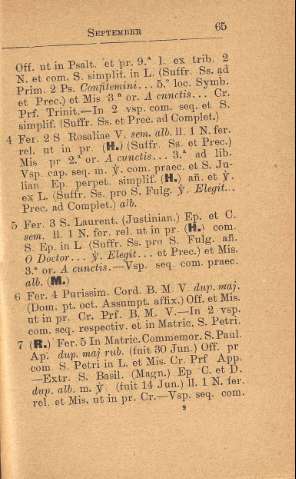 SEPTEMBER 65
Off. ut in Psalt. et pr. 9.ª l. ex trib. 2
N. et com. S. simplif. in L. (Suffr. Ss. ad
Prim. 2 Ps. Confitemini... 5.º loc. Symb.
et Prec.) et Mis 3 ª or. A cunctis... Cr.
Prf. Trinit.—In 2 vsp. com. seq. et S.
simplif. (Suffr. Ss. et Prec. ad Complet.)
4 Fer. 2 S Rosaliae V. sem. alb. ll. 1 N. fer.
rel. ut in pr. (H.) (Suffr. Ss. et Prec.)
Mis pr 2.ª or. A cunctis... 3.ª ad lib.
Vsp. cap. seq. m. ℣. com. praec. et S. Ju-
lian. Ep. perpet. simplif. (H.) añ. et ℣.
ex L. (Suffr. Ss. pro S. Fulg. ℣. Elegit...
Prec. ad Complet.) alb.
5 Fer. 3 S. Laurent. (Justinian.) Ep. et C.
sem. ll. 1 N. fer. rel. ut in pr. (H.) com.
S. Ep. in L (Suffr. Ss. pro S. Fulg. añ.
O Doctor... ℣. Elegit... et Prec.) et Mis.
3.ª or. A cunctis.—Vsp. seq. com. praec.
alb. (M.)
6 Fer. 4 Purissim. Cord. B. M. V dup. maj.
(Dom. pt. oct. Assumpt. affix.) Off. et Mis.
ut in pr. Cr. Prf. B. M. V.—In 2 vsp.
com. seq. respectiv. et in Matric. S. Petri.
7 (R.) Fer. 5 In Matric. Commemor. S. Paul.
Ap. dup. maj rub. (fuit 30 Jun.) Off. pr
com S. Petri in L. et Mis. Cr. Prf App.
—Extr. S. Basil. (Magn.) Ep C. et D.
dup. alb. m. ℣ (fuit 14 Jun.) ll. 1 N. fer.
rel. et Mis. ut in pr. Cr—Vsp. seq. com.